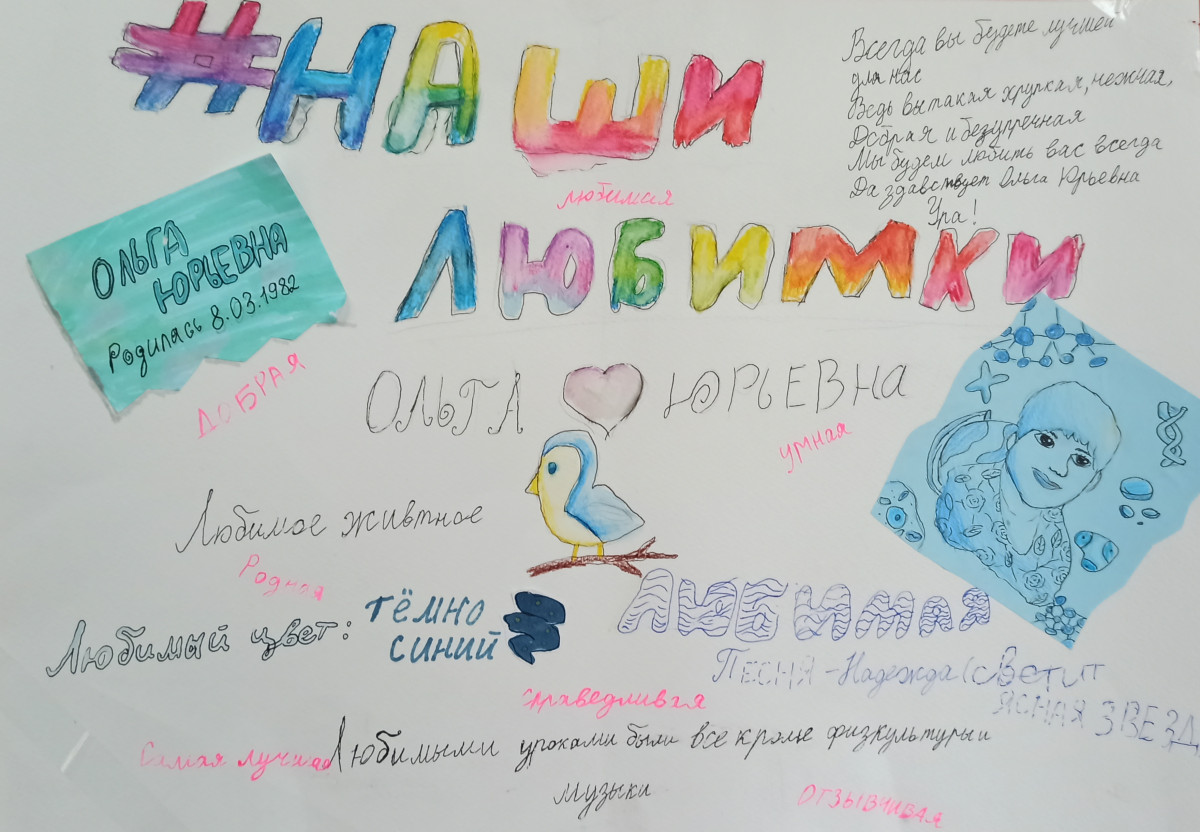 #НАШИ
Всегда вы будете лучшей
для нас
Ведь вы такая хрупкая, нежная,
Добрая и безупречная
Мы будем любить вас всегда
Да здавствует Ольга Юрьевна
Ура!
любимая
ЛЮБИМКИ
ОЛЬГА
ЮРЬЕВНА
Родилась 8.03.1982
ДОБРАЯ
ОЛЬГА ЮРЬЕВНА
умная
Любимое живтное
Родная
Любимый цвет: ТЁМНО
СИНИЙ
ЛЮБИМАЯ
ПЕСНЯ - Надежда (сВетит
ЯСНАЯ ЗВЕЗД
справедливая
Самая лучшая
Любимыми уроками были все кроме физкультуры и
музыки
ОТЗЫВЧИВАЯ